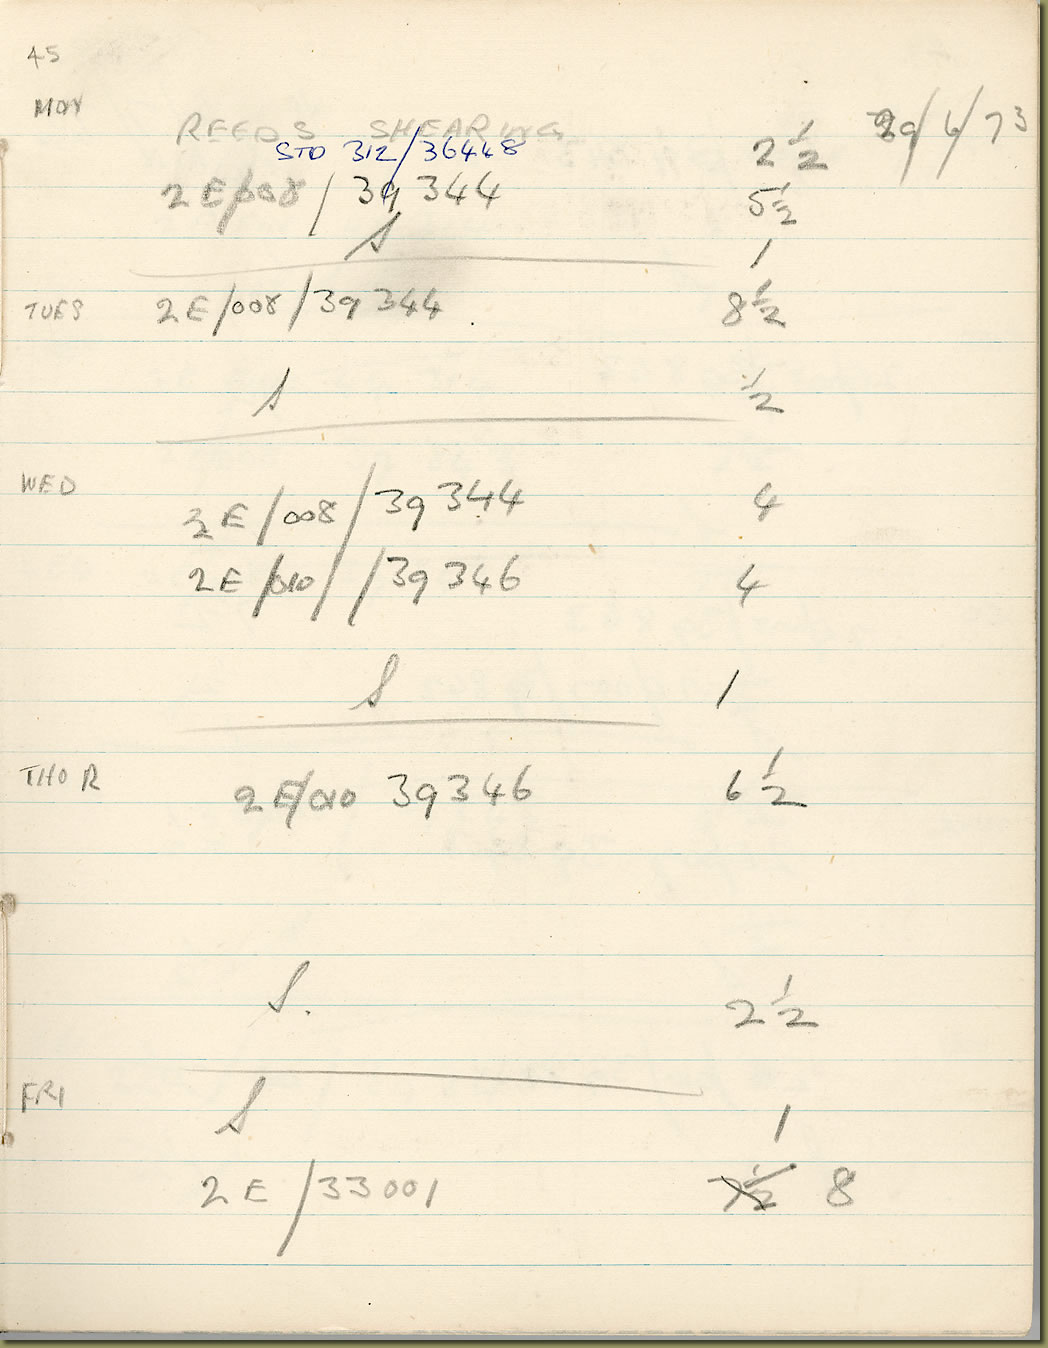 45
MON 29/6/73
REEDS SHEARING
STD 312/36448 2 1/2
2E/008/39344 5 1/2
S 1
TUES 2E/008/39344 8 1/2
S 1/2
WED
2E/008/39344 4
2E/010//39346 4
S 1
THUR 2E/010 39346 6 1/2
S. 2 1/2
FRI
S 1
2E/33001 7 1/2 8